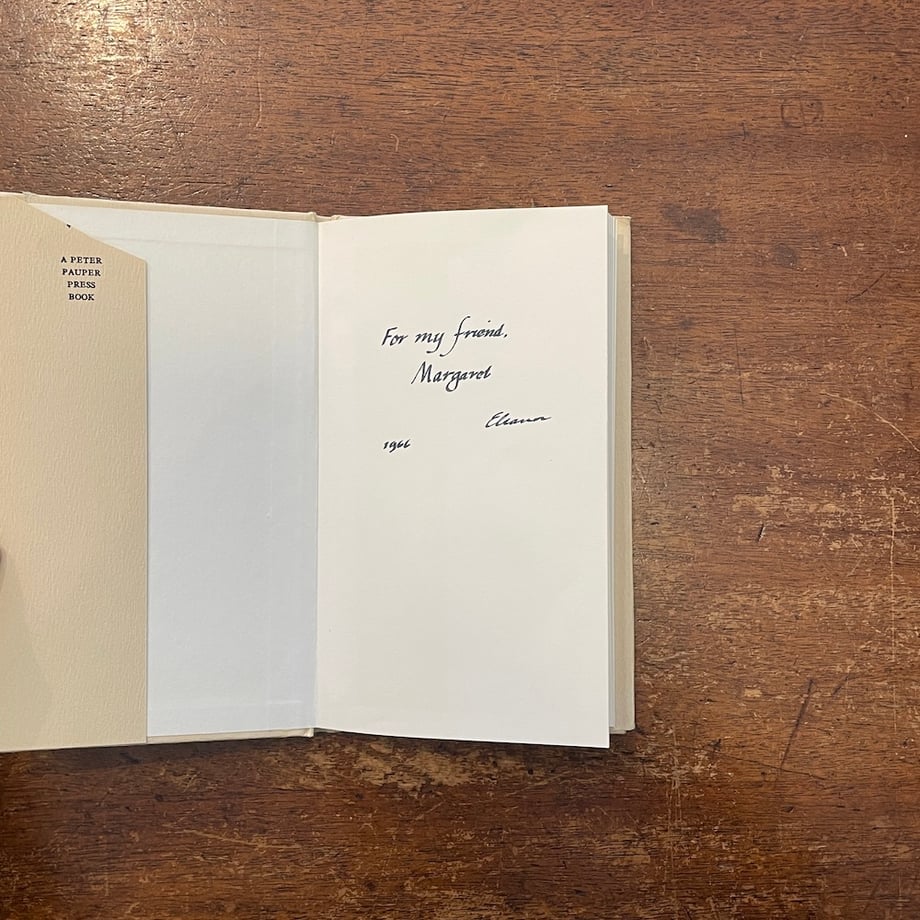 A PETER
PAUPER
PRESS
BOOK
For my friend,
Margaret
Eleanor
1966